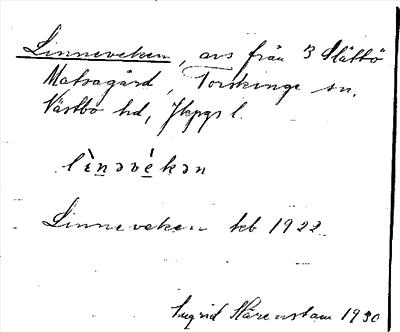 Linneveken, avs från 3 Slättö
Matsagård, Torskinge sn,
Västbo hd, Jkpgs l.
lὲnəvékən
Linneveken kb 1922
Ingrid Härenstam 1930